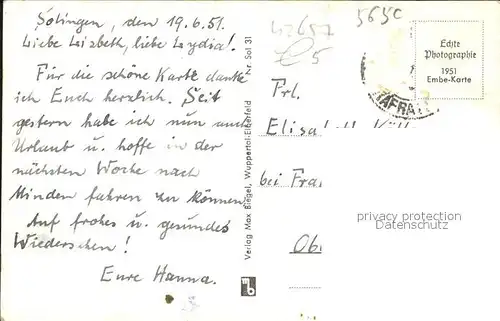 Solingen, den 19.6.51.
Liebe Lisbeth, liebe Lydia!
Für die schöne Karte danke
ich Euch herzlich. Seit
gestern habe ich nun auch
Urlaub u. hoffe in der
nächsten Woche nach
Minden fahren zu können.
Auf frohes u. gesundes
Wiedersehen!
Eure Hanna.
Verlag Max Biegel, Wuppertal-Elberfeld Nr. Sol 31
mb
5650
5
Echte
Photographie
1951
Embe-Karte
Frl.
bei Fra
Ob
privacy protection
Datenschutz